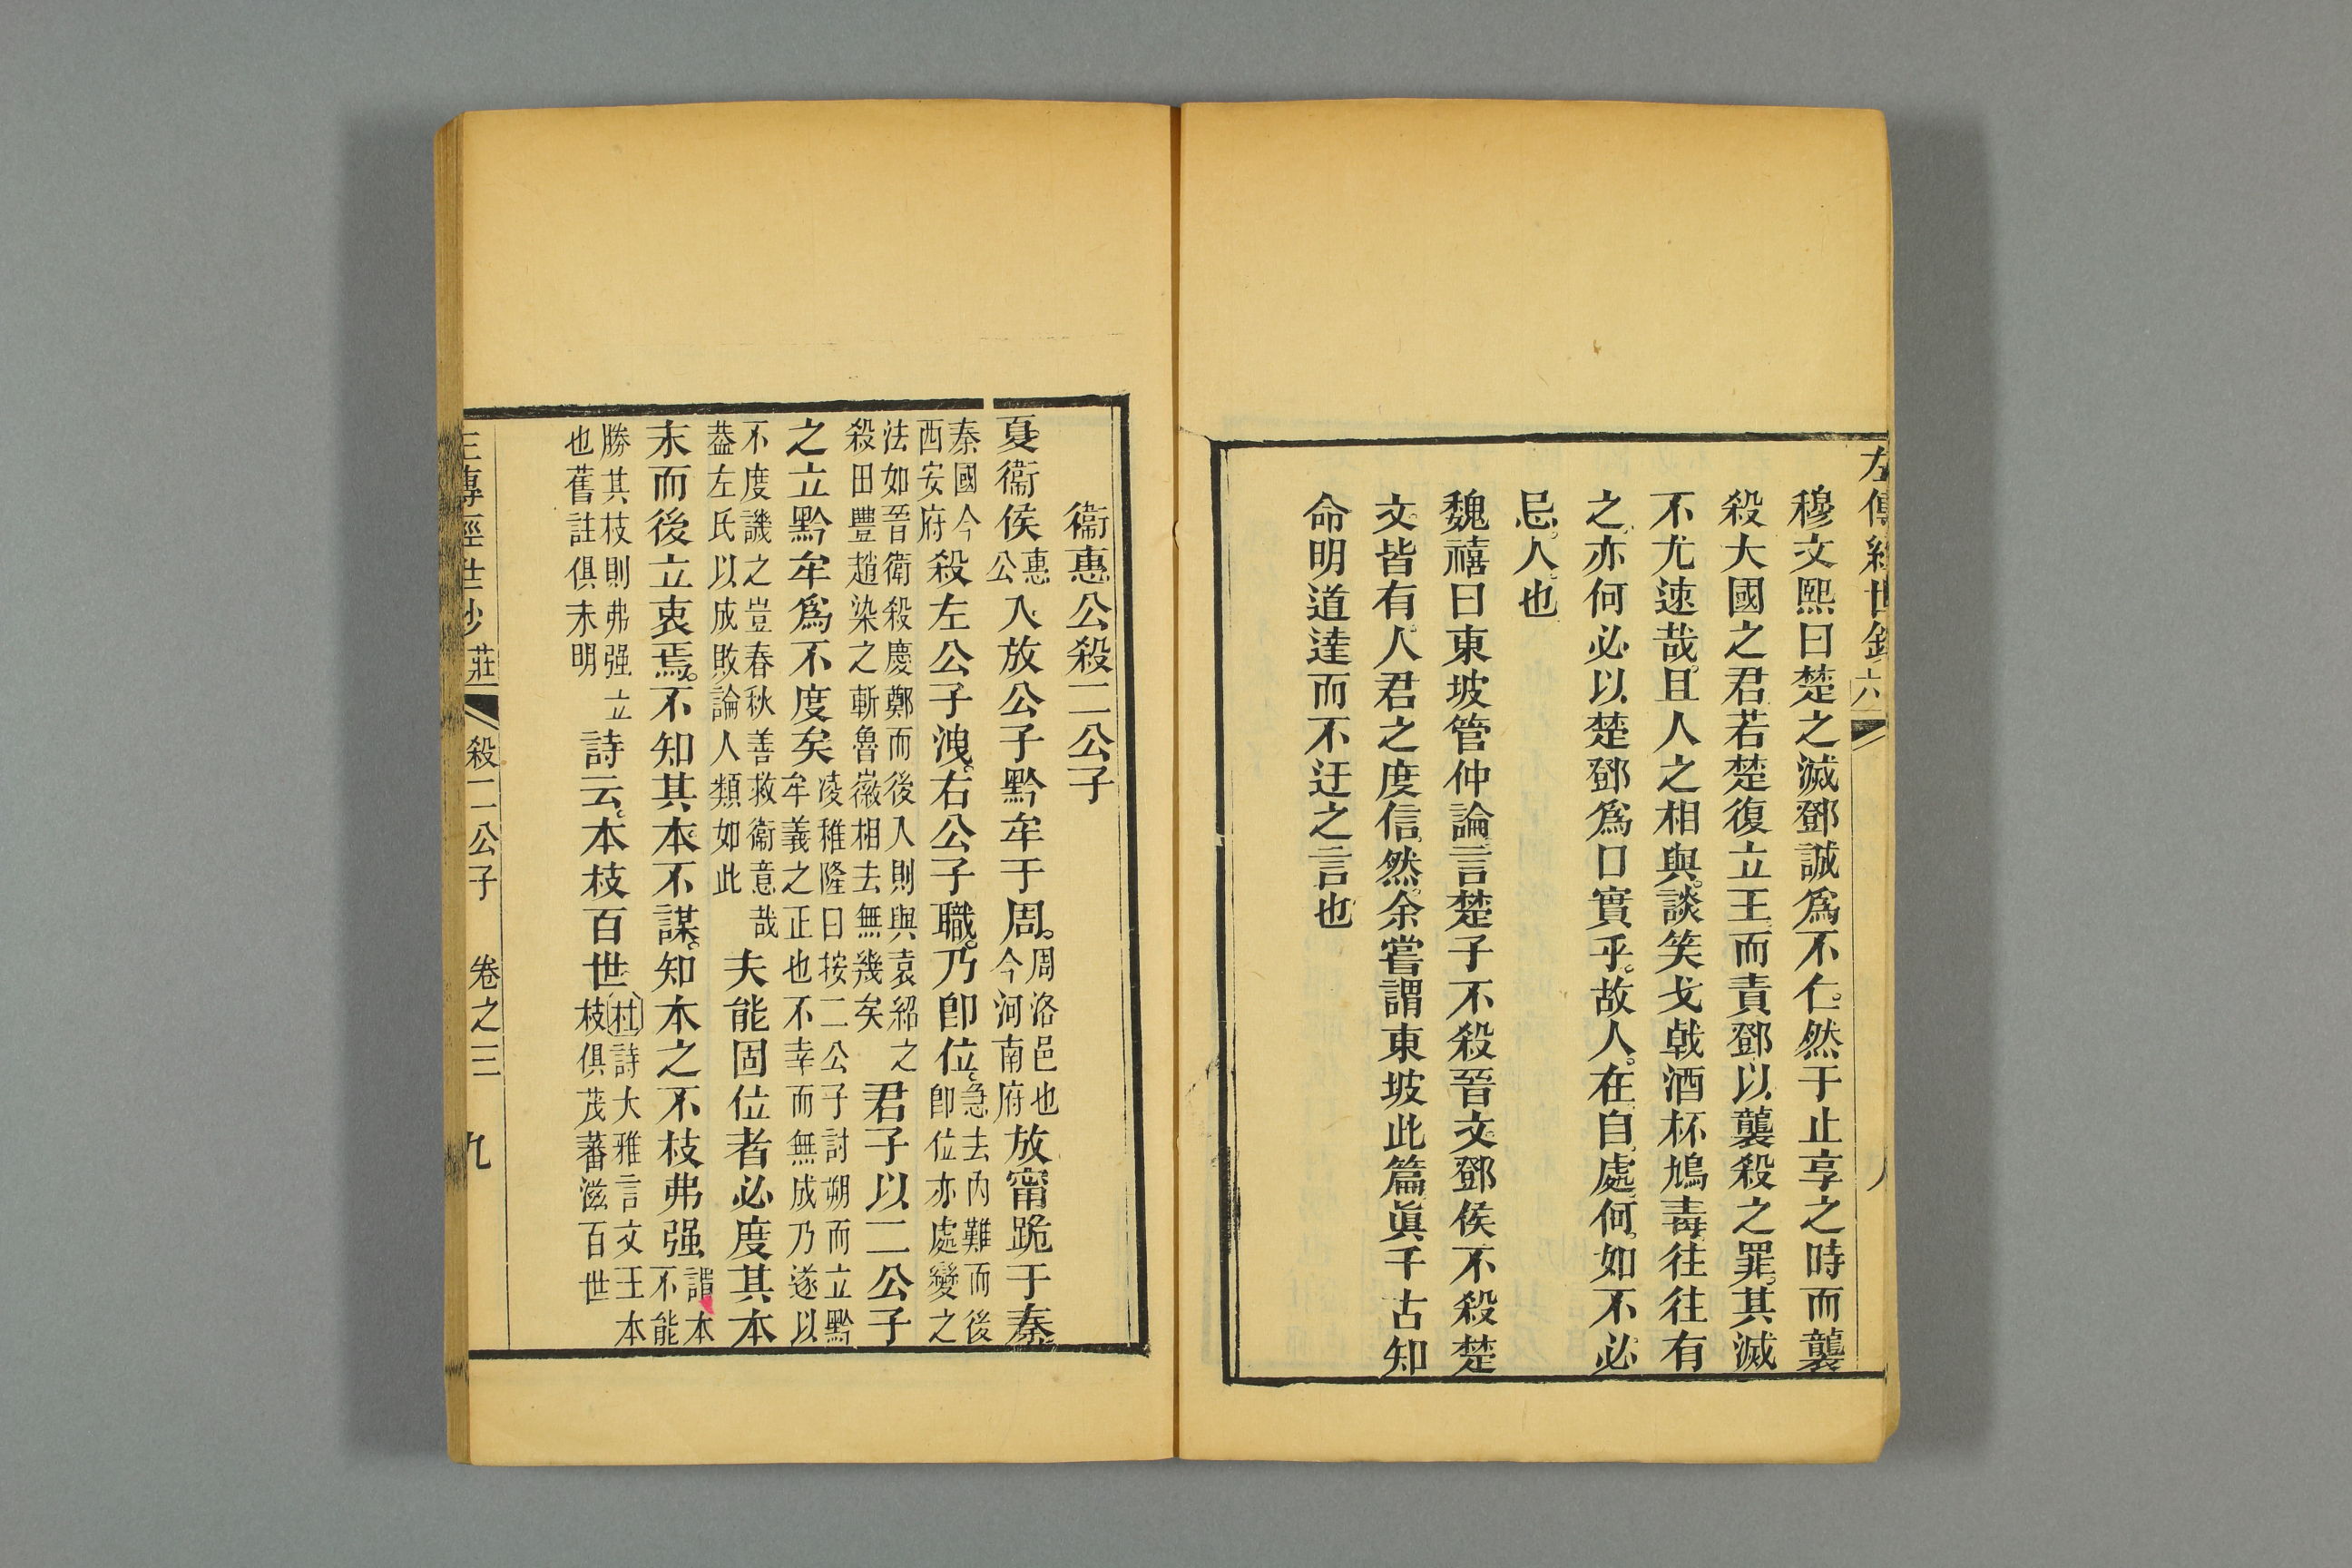 左傳經世鈔 六 八
穆文熙曰楚之滅鄧誠爲不仁。然于止享之時而襲
殺大國之君若楚復立王而責鄧以襲殺之罪。其滅
不尤速哉。且人之相與。談笑戈戟酒杯鴆毒往往有
之亦何必以楚鄧爲口實乎。故人。在自處何。如不必
忌人也
魏禧曰東坡管仲論言楚子不殺晉文鄧侯不殺楚
文皆有人君之度信然。余嘗謂東坡此篇眞千古知
命明道達而不迂之言也
衞惠公殺二公子
夏衞侯惠公入放公子黔牟于周。周洛邑也今河南府放甯跪于秦。
秦國今西安府殺左公子洩。右公子職。乃卽位。急去內難而後卽位亦處變之
法如晉衛殺慶鄭而後入則與袁紹之殺田豐趙染之斬魯徽相去無幾矣君子以二公子
之立黔牟爲不度矣凌稚隆曰按二公子討朔而立黔牟義之正也不幸而無成乃遂以
不度譏之豈春秋善救衞意哉葢左氏以成敗論人類如此夫能固位者必度其本
末而後立衷焉。不知其本。不謀。知本之不枝弗强本不能
勝其枝則弗强立也舊註俱未明詩云。本枝百世杜詩大雅言文王本枝俱茂蕃滋百世
左傳經世鈔 莊 殺二公子 卷之三 九